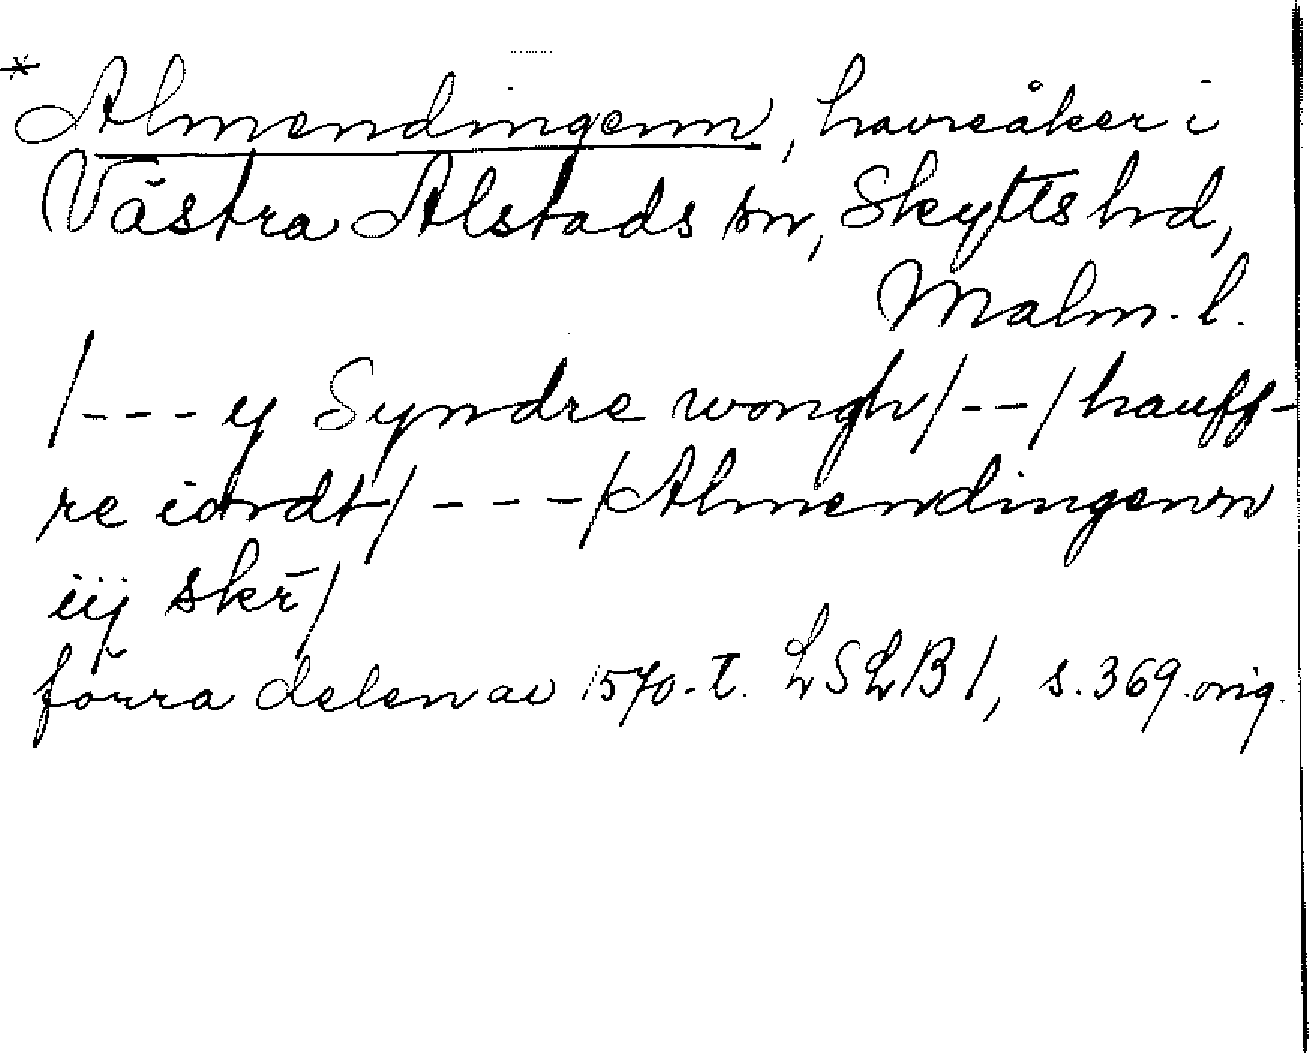 *Almendingenn, havreåker i
Västra Alstads sn, Skytts hd,
Malm. l.
/--- y Syndre wongh/--/hauff-
re iordt/---/Almendingenn
iij skr̄/
förra delen av 1570-t. LSLB 1, s. 369. orig.